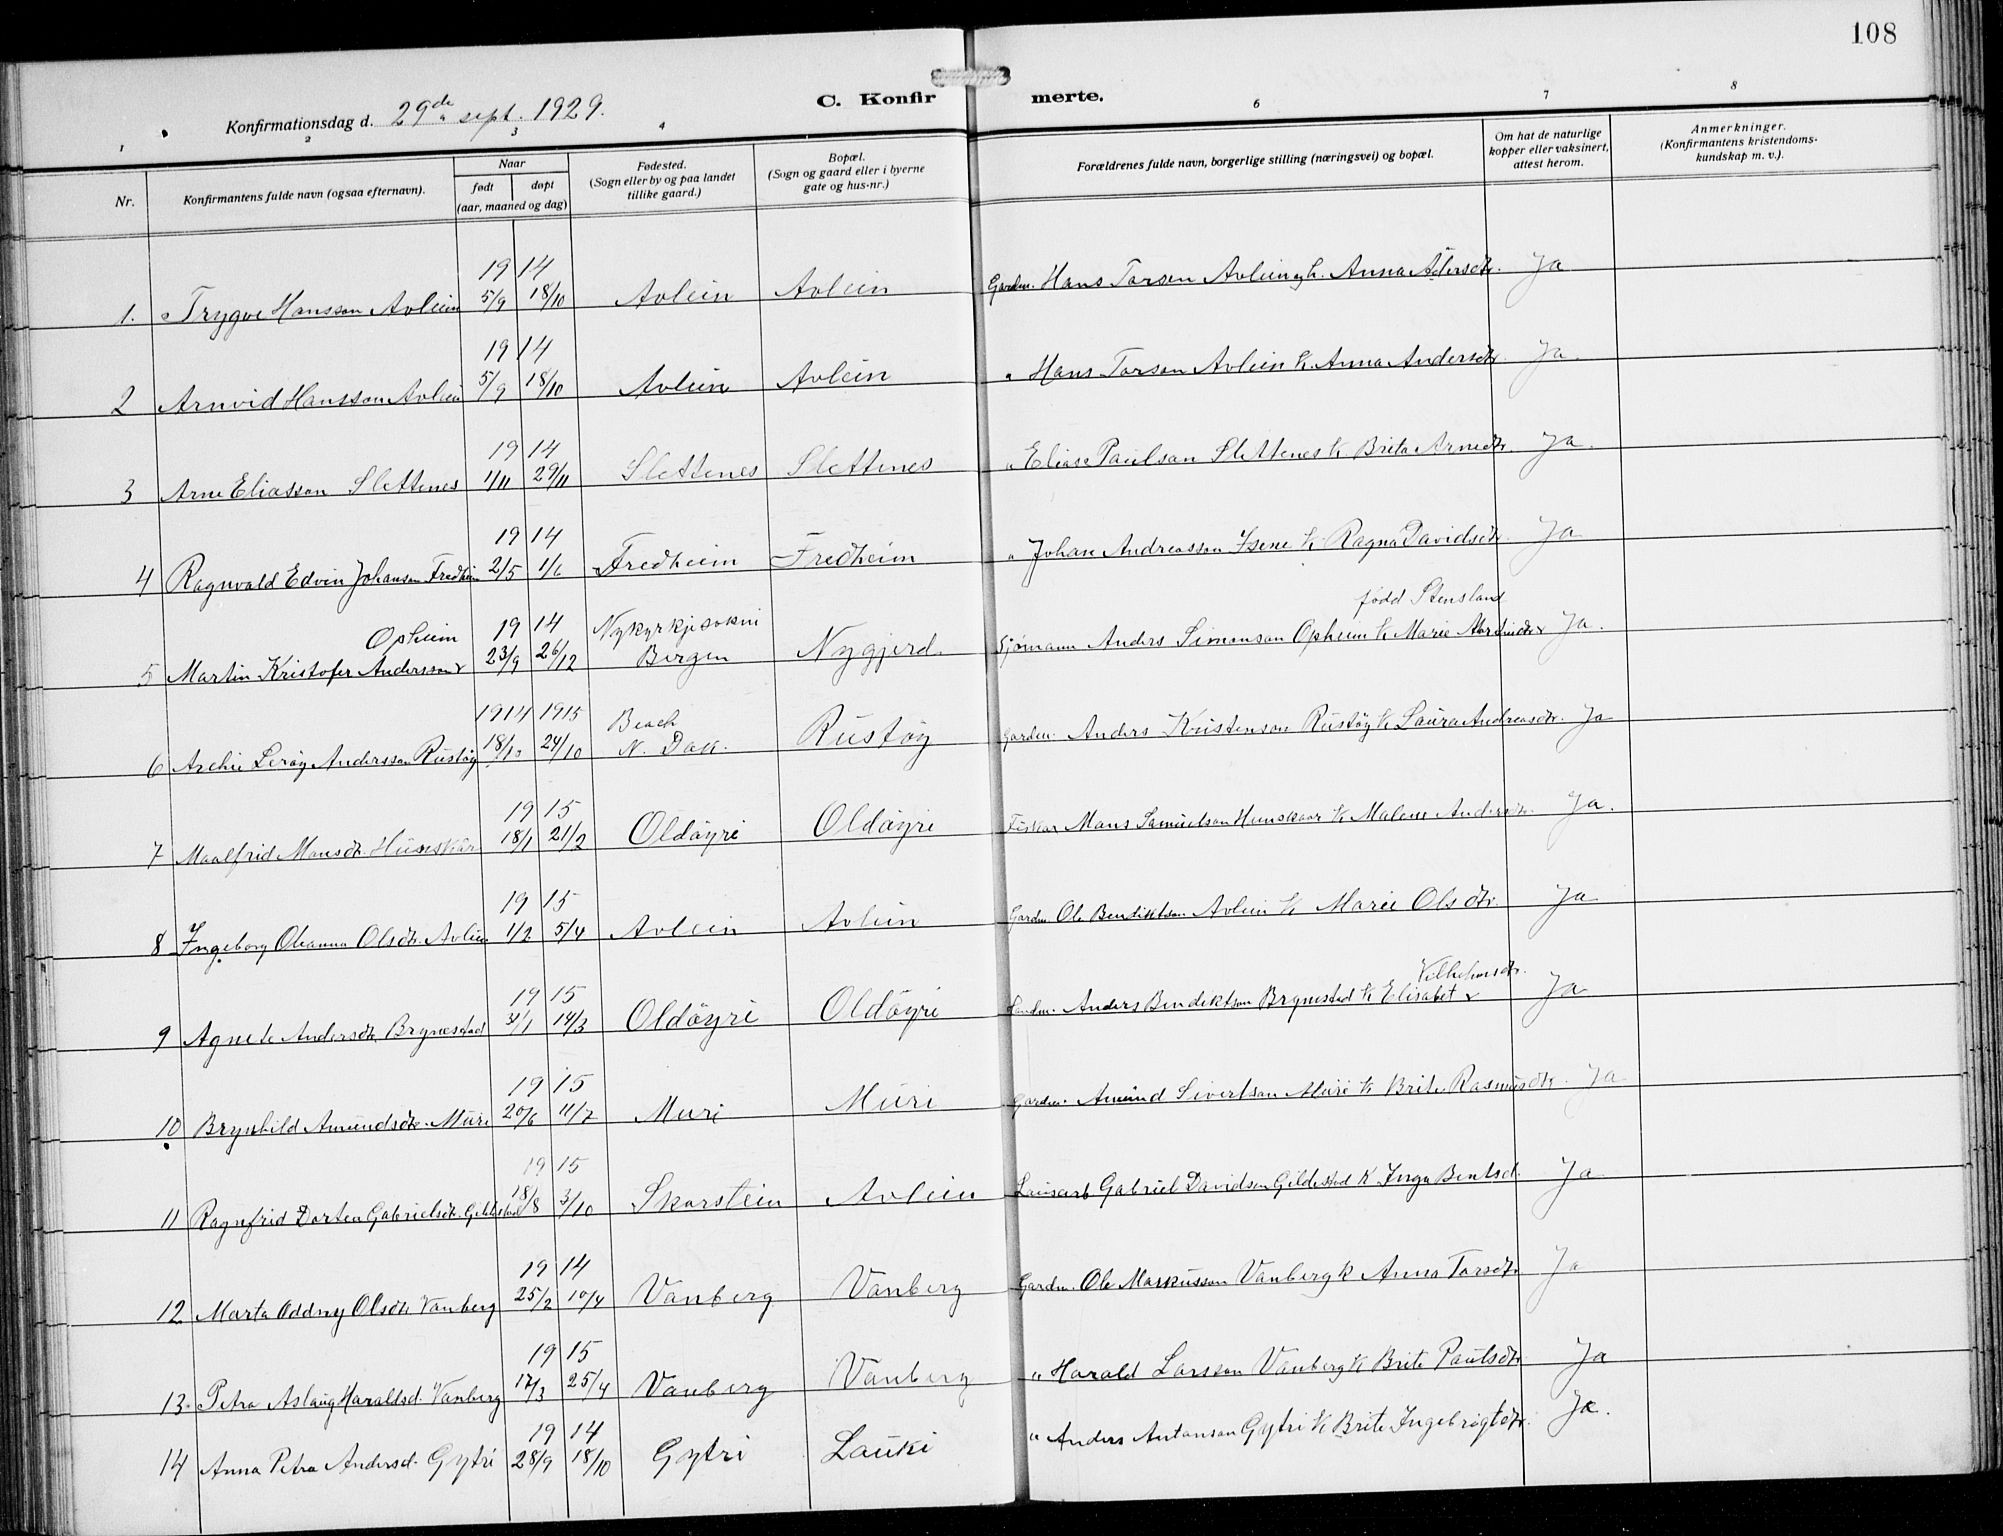 108
C. Konfirmerte.
Konfirmationsdag d. 29de sept. 1929.
1 2 3 4 6 7 8
Nr. Konfirmantens fulde navn (ogsaa efternavn). Naar født døpt (aar, maaned og dag) Fødested. (Sogn eller by og paa landet tillike gaard.) Bopæl. (Sogn og gaard eller i byerne gate og hus-nr.) Forældrenes fulde navn, borgerlige stilling (næringsvei) og bopæl. Om hat de naturlige kopper eller vaksinert, attest herom. Anmerkninger. (Konfirmantens kristendoms-kundskap m. v.).
19 14
1. Trygve Hansson Avlein 5/9 18/10 Avlein Avlein Gardm. Hans Tarson Avlein Anna Ja
19 14
2 Arnvid Hansson Avlein 5/9 18/10 Avlein Avlein " Hans Tarson Avlein k. Anna Andersdtr. Ja
19 14
3 Arne Eliasson Slettenes 1/11 29/11 Slettenes Slettenes " Elias Paulson Slettenes k Brita Arnedtr. Ja.
19 14
4 Ragnvald Edvin Johanson Fredheim 2/5 1/6 Fredheim Fredheim " Johan Andreasson Isene k Ragna Davidsdtr. Ja
Opheim 19 14 Nykyrkjesokni født Stensland
5 Martin Kristofer Andersson 23/9 26/12 Bergen Nygjerd. Sjømann Anders Simonson Opheim k Marie Ja.
1914 1915 Beach
6 Archie Leroy Andersson Rustøy 18/10 24/10 N. Dak. Rustøy Gardm. Anders Kristenson Rustøy k Laura Andreasdtr. Ja
19 15
7 Maalfrid Mansdtr. Hunskår 18/1 21/2 Oldøyri Oldøyri Fiskar Mans Samuelson Hunskaar k Malene Andersdtr. Ja.
19 15
8 Ingeborg Oleanna Olsdtr. Avlein 1/2 5/4 Avlein Avlein Gardm. Ole Bendiktson Avlein k Marie Olsdtr. Ja
19 15 Vilhelmsdtr.
9 Agnete Andersdtr. Brynestad 31/1 14/3 Oldøyri Oldøyri Handm. Anders Bendiktson Brynestad k Elisabet Ja
19 15
10 Brynhild Amundsdtr. Muri 20/6 11/7 Muri Muri Gardm. Amund Sivertson Muri k Brite Rasmusdtr. Ja
19 15
11 Ragnfrid Dorten Gabrielsdtr. Gildestad 18/8 3/10 Skarstein Avlein Lausarb. Gabriel Davidson Gildestad k Inga Bentsd. Ja
19 14
12 Marta Oddny Olsdtr. Vanberg 25/2 10/4 Vanberg Vanberg Gardm. Ole Markusson Vanberg k Anna Tarsdtr. Ja
19 15
13. Petra Aslaug Haraldsd. Vanberg 17/3 25/4 Vanberg Vanberg " Harald Larsson Vanberg k Brite Paulsdtr. Ja
19 14
14 Anna Petra Andersd. Gytri 28/9 18/10 Gytri Lauki " Anders Antonson Gytri k Brite Ingebrigtdtr. Ja.